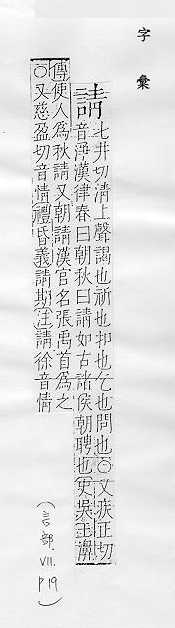 字彙
請 七井切清上聲謁也祈也扣也乞也問也○又疾正切
音淨漢律春曰朝秋曰請如古諸侯朝聘也史吳王濞
傳使人爲秋請又朝請漢官名張禹首爲之
○又慈盈切音情禮昏義請期注請徐音情
(言部.
VII.
P19)